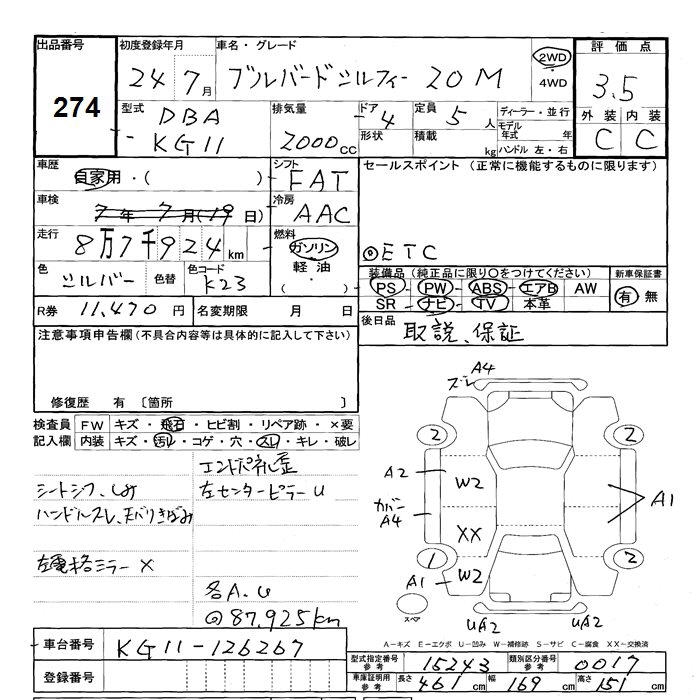 出品番号 274
初度登録年月 24 7月
車名・グレード ブルバードシルフィー 20M
2WD・4WD
評価点 3.5
外装 C 内装 C
型式 DBA KG11
排気量 2000cc
ドア 4 形状
定員 5人 積載 kg
ディーラー・並行
モデル年式 年
ハンドル 左・右
車歴 自家用・( )
シフト FAT
セールスポイント(正常に機能するものに限ります)
◎ETC
車検 7年7月(19日)
冷房 AAC
走行 8万7千924km
燃料 ガソリン・軽油・( )
色 シルバー 色替 色コード K23
装備品(純正品に限り〇をつけてください)
PS PW ABS エアB AW
SR ナビ TV 本革
新車保証書 有 無
R券 11,470円 名変期限 月 日
後日品 取説、保証
注意事項申告欄(不具合内容等は具体的に記入して下さい)
修復歴 有 〔箇所 〕
検査員記入欄
FW キズ・飛石・ヒビ割・リペア跡・×要
内装 キズ・汚レ・コゲ・穴・スレ・キレ・破レ
エンドパネル歪
シートシワ、しみ 左センターピラーU
ハンドルスレ、天バリきばみ
左電格ミラー×
各A.U
◎87,925km
ズレ A4
2 2
A2 W2 A1
カバーA4
XX
1 2
A1 W2
スペア
UA2 UA2
A-キズ E-エクボ U-凹み W-補修跡 S-サビ C-腐食 XX-交換済
車台番号 KG11-126267
登録番号
型式指定番号 参考 15243 類別区分番号 参考 0017
車庫証明用 参考 長さ 461cm 幅 169cm 高さ 151cm